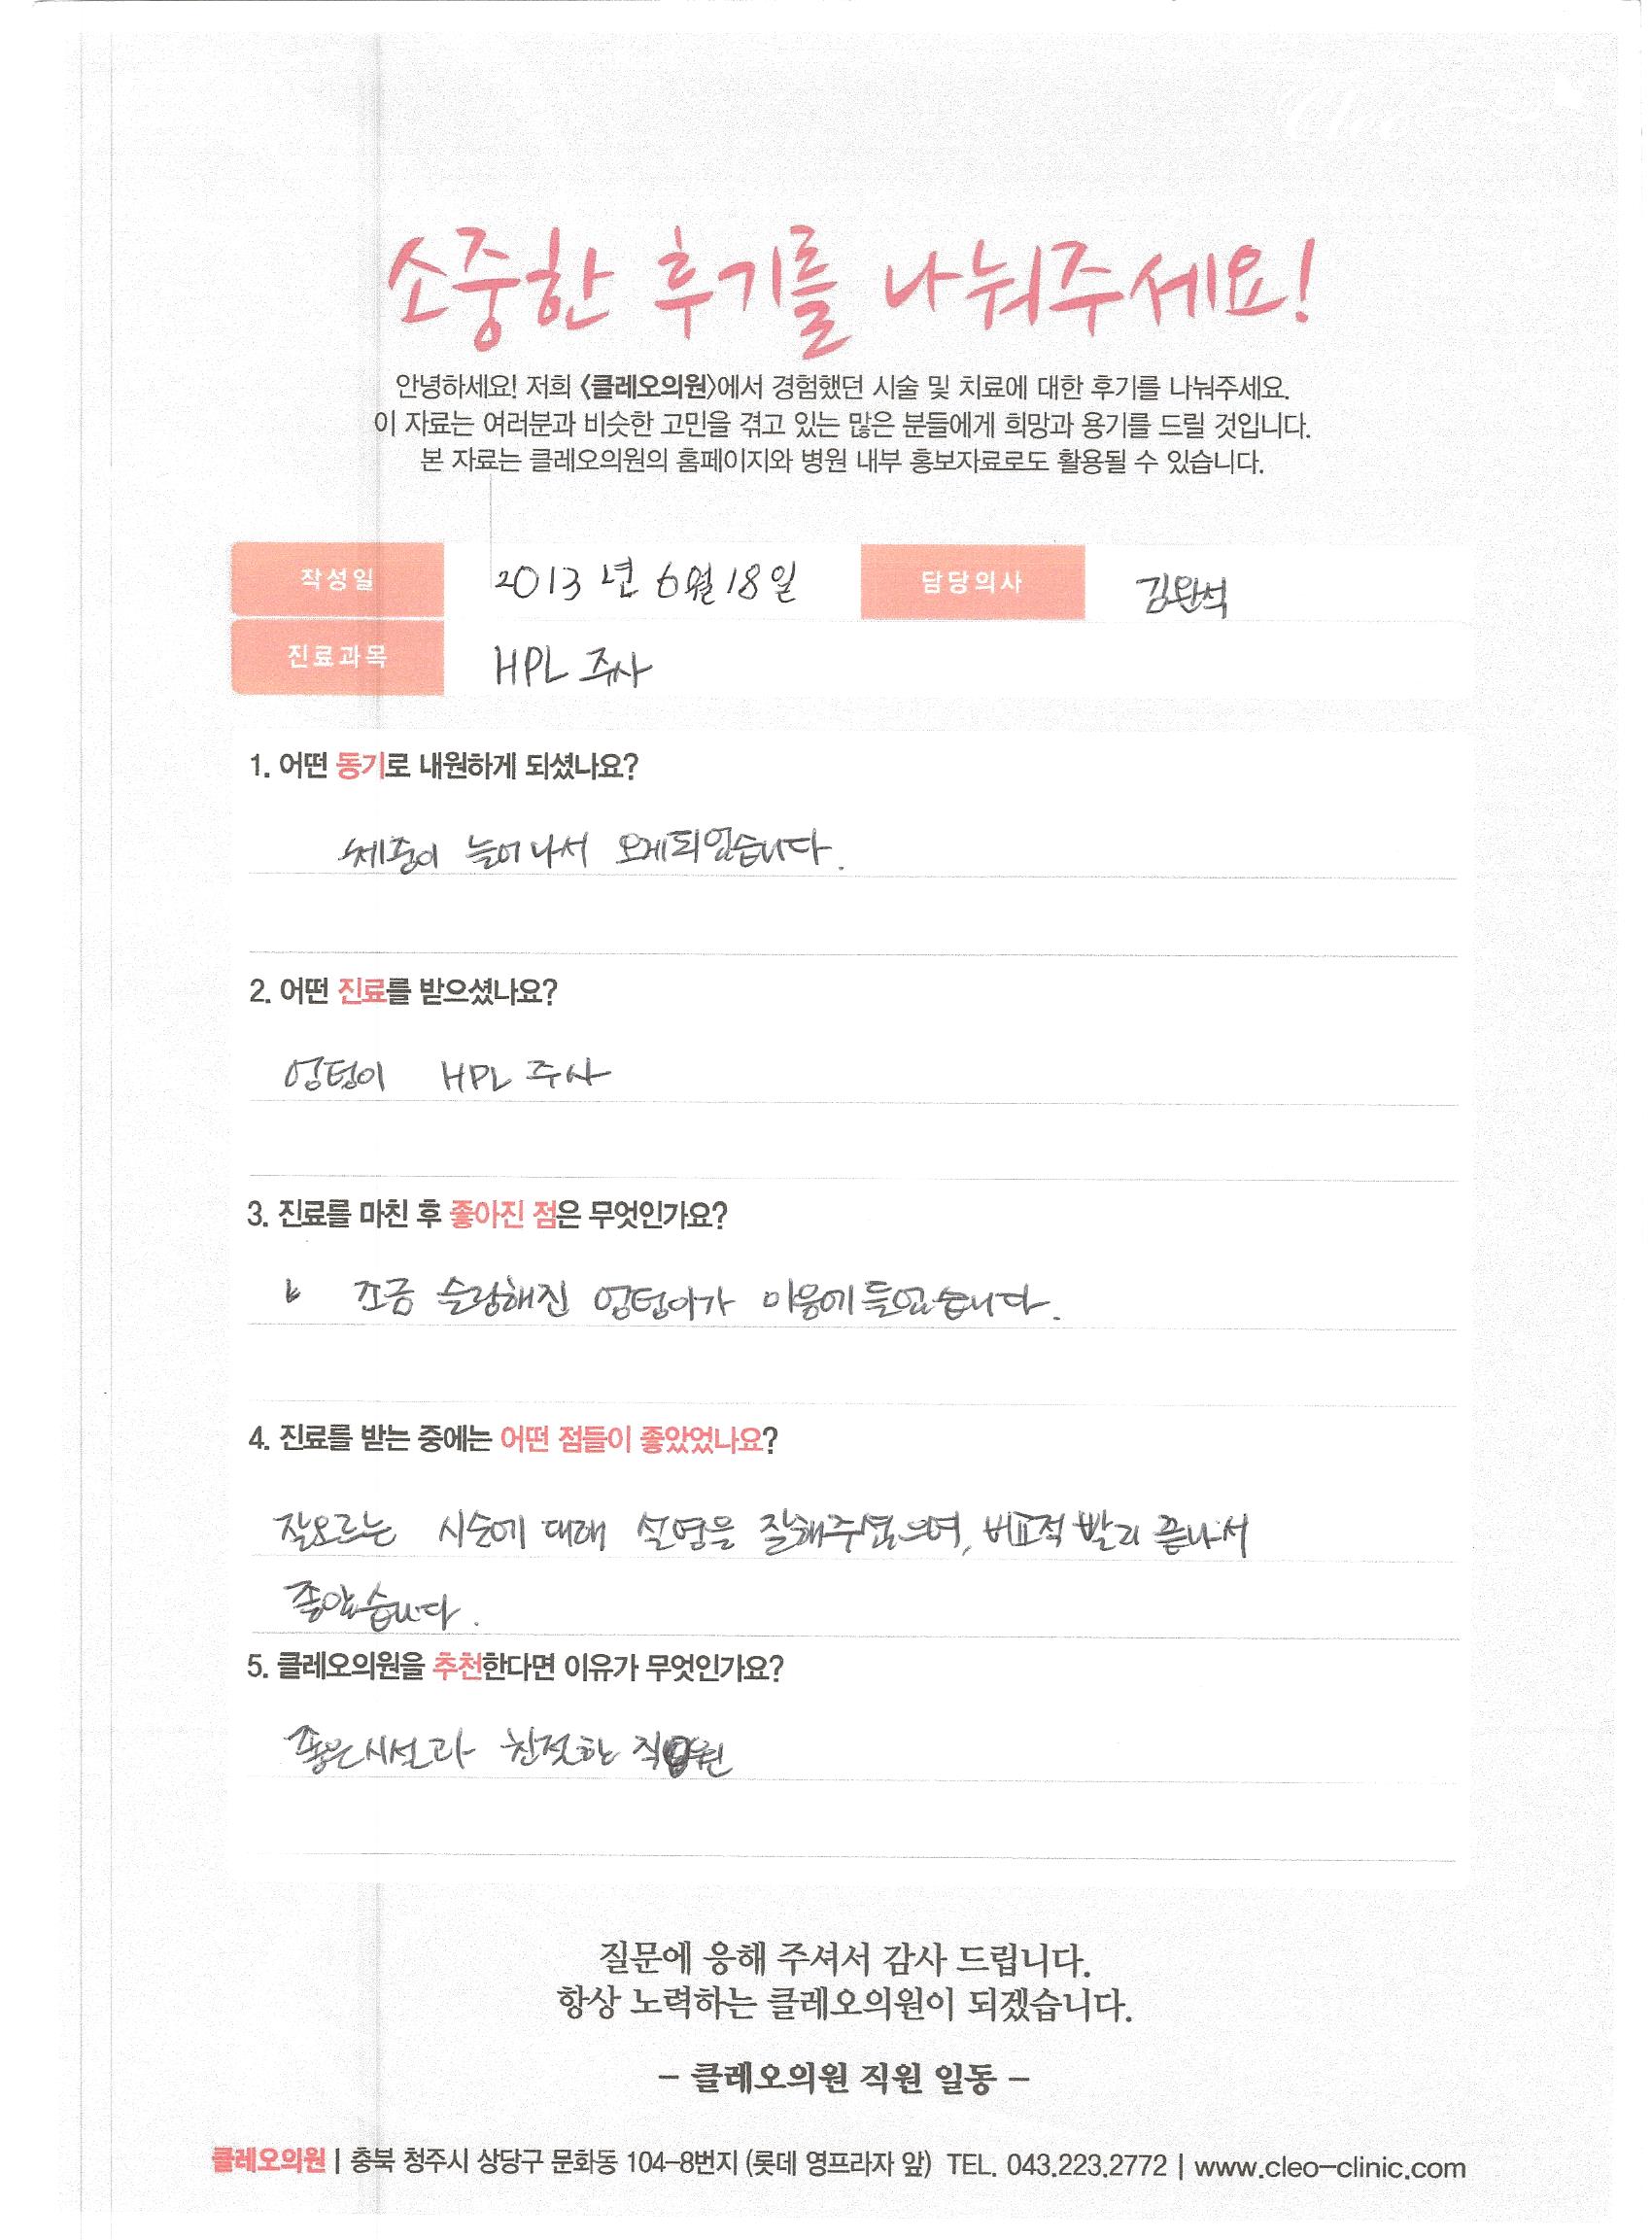 Cleo
소중한 후기를 나눠주세요!
안녕하세요! 저희 <클레오의원>에서 경험했던 시술 및 치료에 대한 후기를 나눠주세요.
이 자료는 여러분과 비슷한 고민을 겪고 있는 많은 분들에게 희망과 용기를 드릴 것입니다.
본 자료는 클레오의원의 홈페이지와 병원 내부 홍보자료로도 활용될 수 있습니다.
작성일 2013 년 6월 18일 담당의사 김완석
진료과목 HPL 주사
1. 어떤 동기로 내원하게 되셨나요?
체중이 늘어나서 오게되었습니다.
2. 어떤 진료를 받으셨나요?
엉덩이 HPL 주사
3. 진료를 마친 후 좋아진 점은 무엇인가요?
조금 슬랑해진 엉덩이가 마음에 들었습니다.
4. 진료를 받는 중에는 어떤 점들이 좋았었나요?
잘모르는 시술에 대해 설명을 잘해주셨으며, 비교적 빨리 끝나서
좋았습니다.
5. 클레오의원을 추천한다면 이유가 무엇인가요?
좋은시설과 친절한 직원
질문에 응해 주셔서 감사 드립니다.
항상 노력하는 클레오의원이 되겠습니다.
– 클레오의원 직원 일동 –
클레오의원 | 충북 청주시 상당구 문화동 104-8번지 (롯데 영프라자 앞) TEL. 043.223.2772 | www.cleo-clinic.com